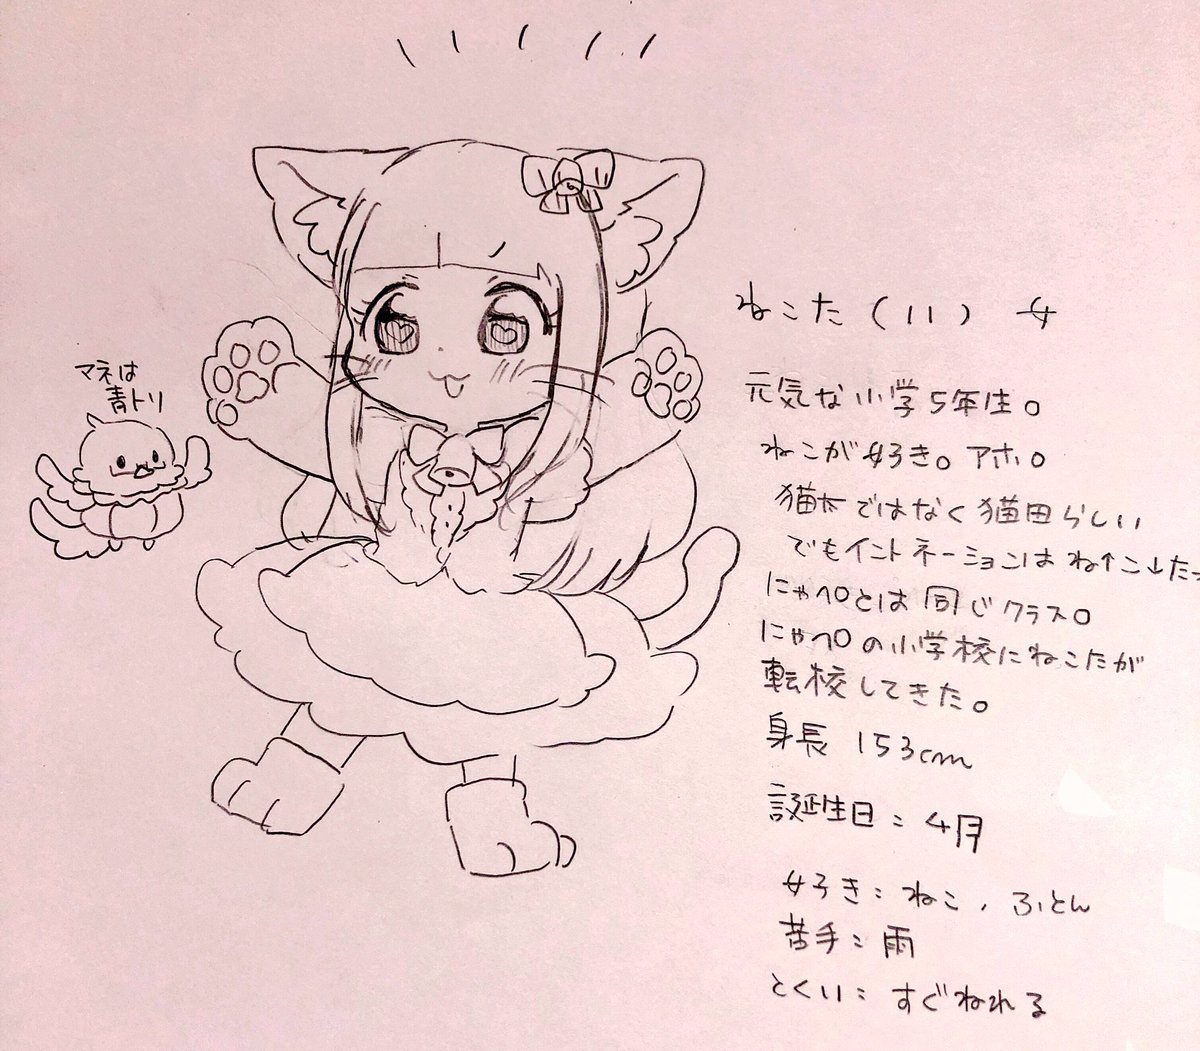 マネは
青トリ
ねこた(11) 女
元気な小学5年生。
ねこが好き。アホ。
猫太ではなく猫田らしい
でもイントネーションはね↑こ↓た→
にゃペロとは同じクラス。
にゃペロの小学校にねこたが
転校してきた。
身長 153cm
誕生日:4月
好き:ねこ、ふとん
苦手:雨
とくい:すぐねれる